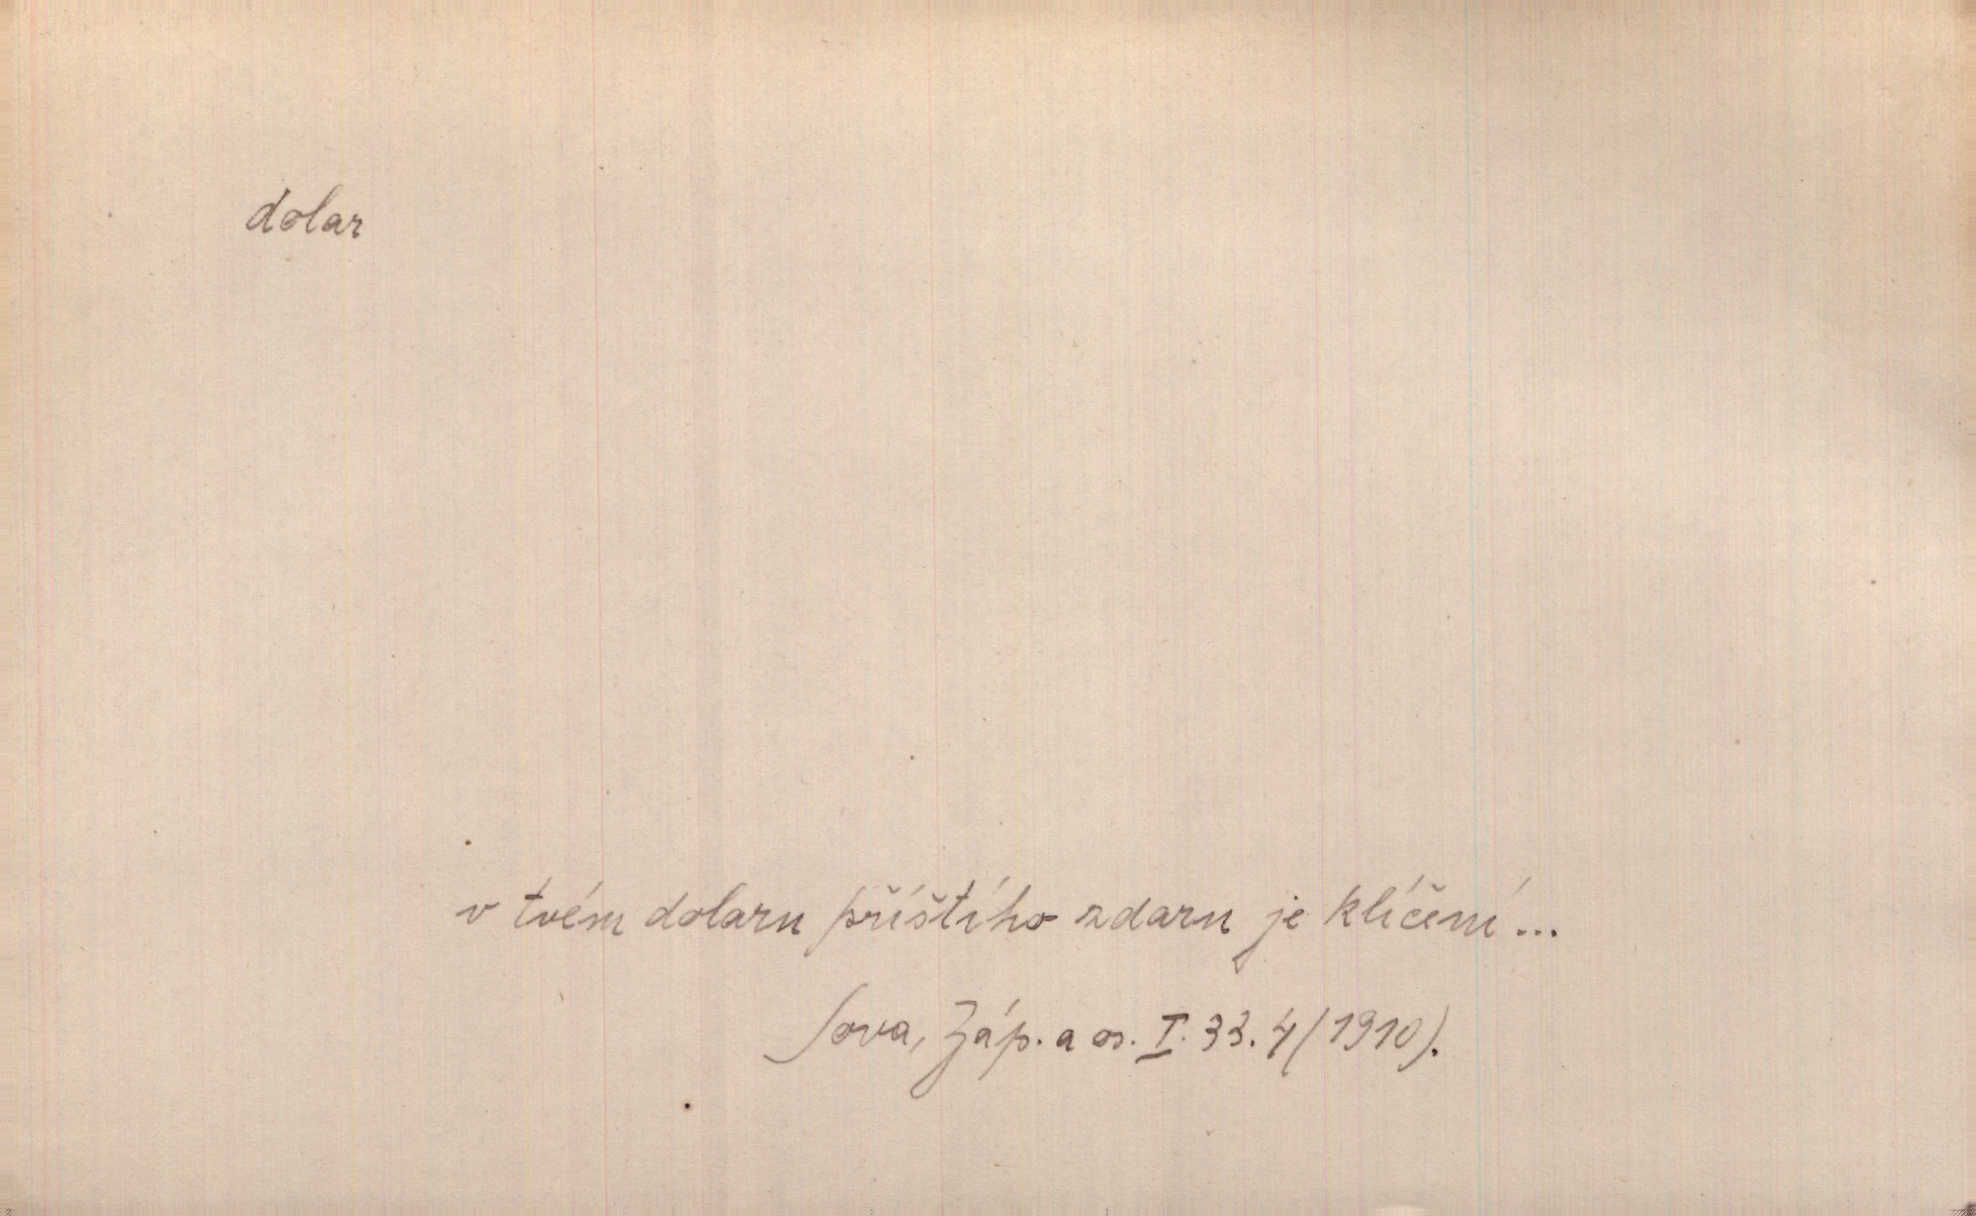 dolar
v tvém dolaru příštího zdaru je klíčení...
Sova, Záp. a os. I. 33. 4 (1910).